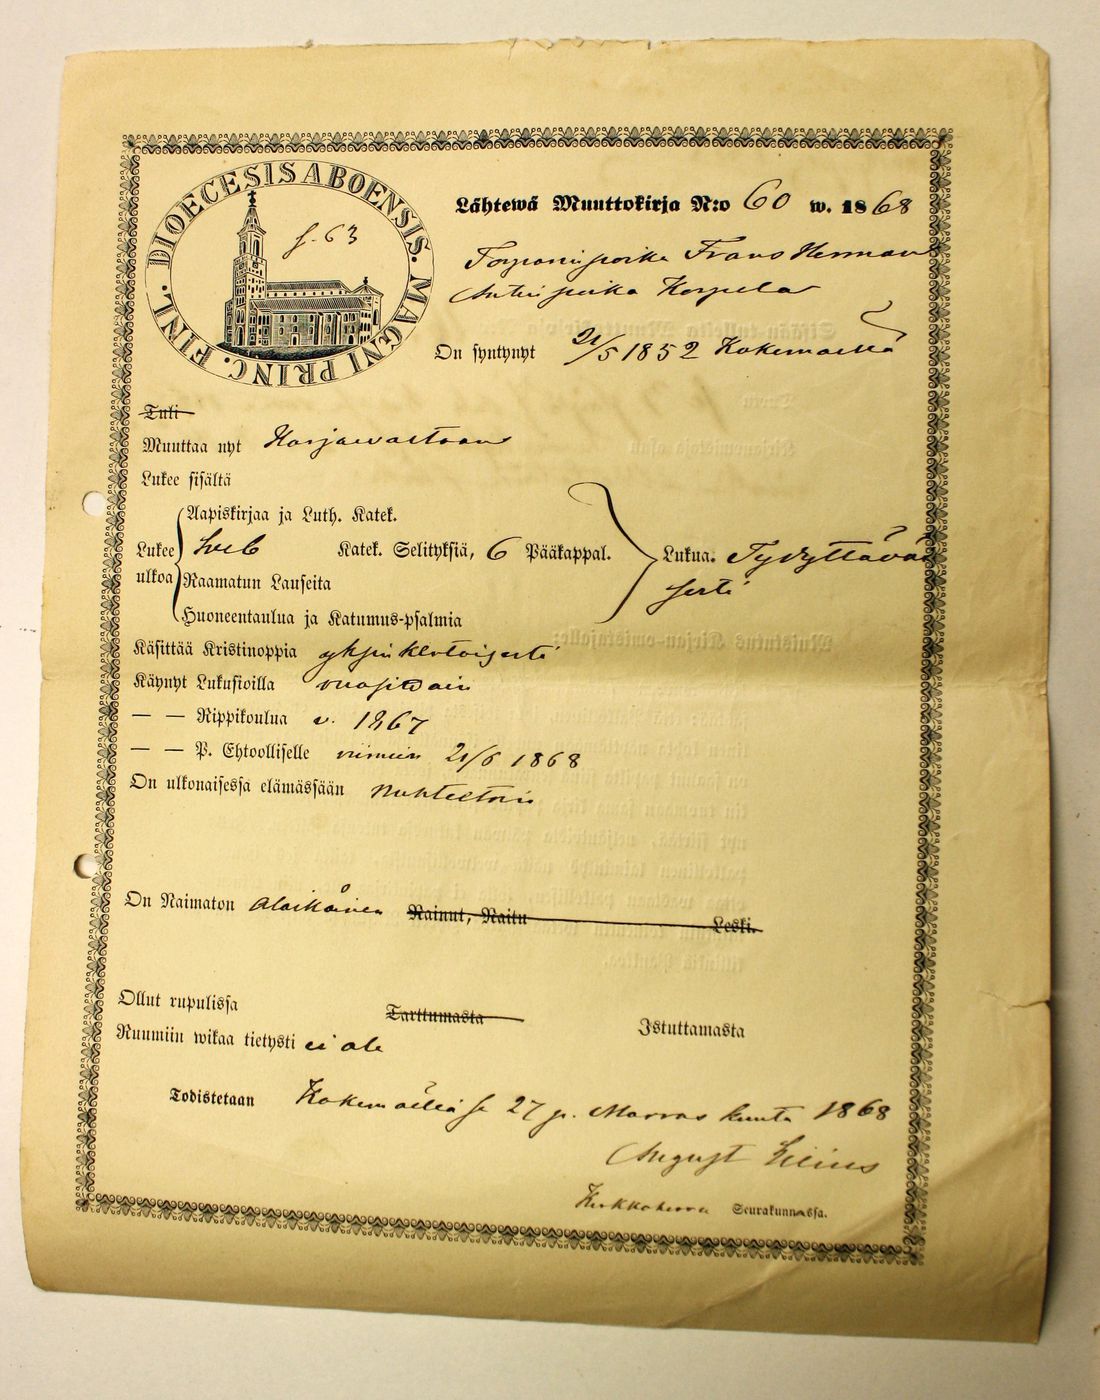 DIOECESIS ABOENSIS. MAGNI PRINC. FINL.
s. 63
Lähtewä Muuttokirja N:o 60 w. 1868
Torparinpoika Frans Herman
Antinpoika Korpela
On syntynyt 21/5 1852 Kokemäellä
Tuli
Muuttaa nyt Harjavaltaan
Lukee sisältä
Aapiskirjaa ja Luth. Katek.
Lukee Sveb Katek. Selityksiä, 6 Pääkappal. Lukua. Tydyttävä
ulkoa Raamatun Lauseita sesti
Huoneentaulua ja Katumus-psalmia
Käsittää Kristinoppia yksinkertaisesti
Käynyt Lukusioilla vuosittain
— — Rippikoulua v. 1867
— — P. Ehtoolliselle viimein 21/6 1868
On ulkonaisessa elämässään nuhteetoin
On Naimaton alaikäinen Nainut, Naitu Leski.
Ollut rupulissa Tarttumasta Istuttamasta
Ruumiin wikaa tietysti ei ole
Todistetaan Kokemäellä se 27 p. Marras kuuta 1868
August Lilius
Kirkkoherra Seurakunnassa.